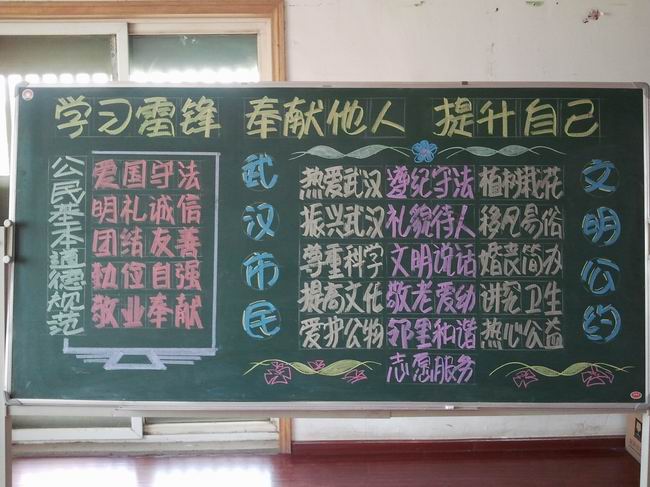 学习雷锋 奉献他人 提升自己
公民基本道德规范
爱国守法
明礼诚信
团结友善
勤俭自强
敬业奉献
武汉市民
热爱武汉 遵纪守法 植树栽花
振兴武汉 礼貌待人 移风易俗
尊重科学 文明说话 婚丧简办
提高文化 敬老爱幼 讲究卫生
爱护公物 邻里和谐 热心公益
志愿服务
文明公约